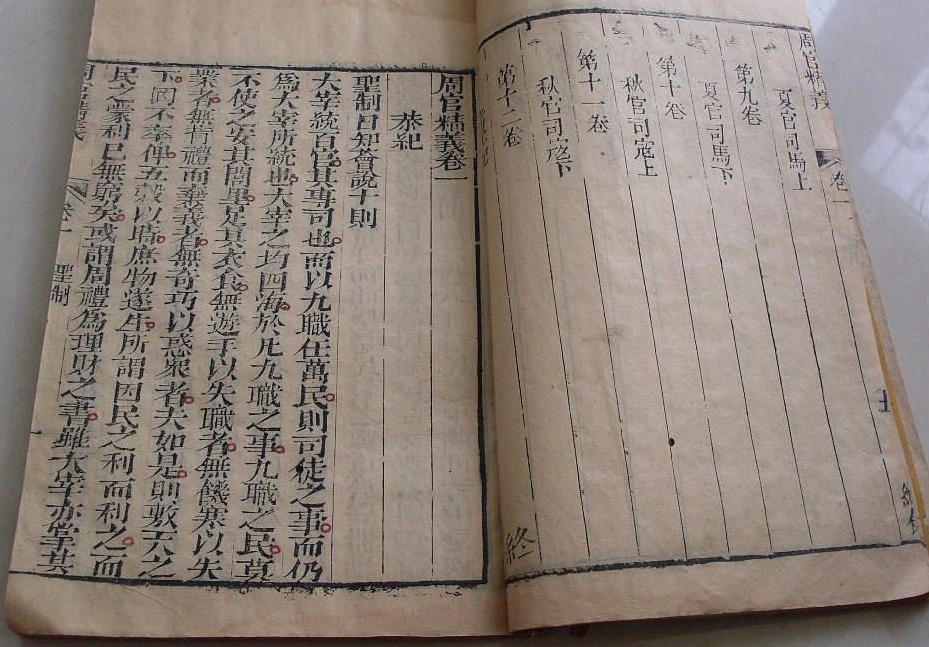 周官精義 卷一
夏官司馬上
第九卷
夏官司馬下
第十卷
秋官司寇上
第十一卷
秋官司寇下
第十二卷
終
周官精義卷一
恭紀
聖制日知薈說十則
大宰統百官其專司也而以九職任萬民則司徒之事而仍
為大宰所統也大宰之均四海於凡九職之事九職之民莫
不使之安其閭里足其衣食無遊手以失職者無饑寒以失
業者無背禮而棄義者無奇巧以惑眾者夫如是則敷天之
下罔不率俾五穀以時庶物遂生所謂因民之利而利之而
民之蒙利已無窮矣或謂周禮為理財之書雖大宰亦掌其
卷一 聖制
一